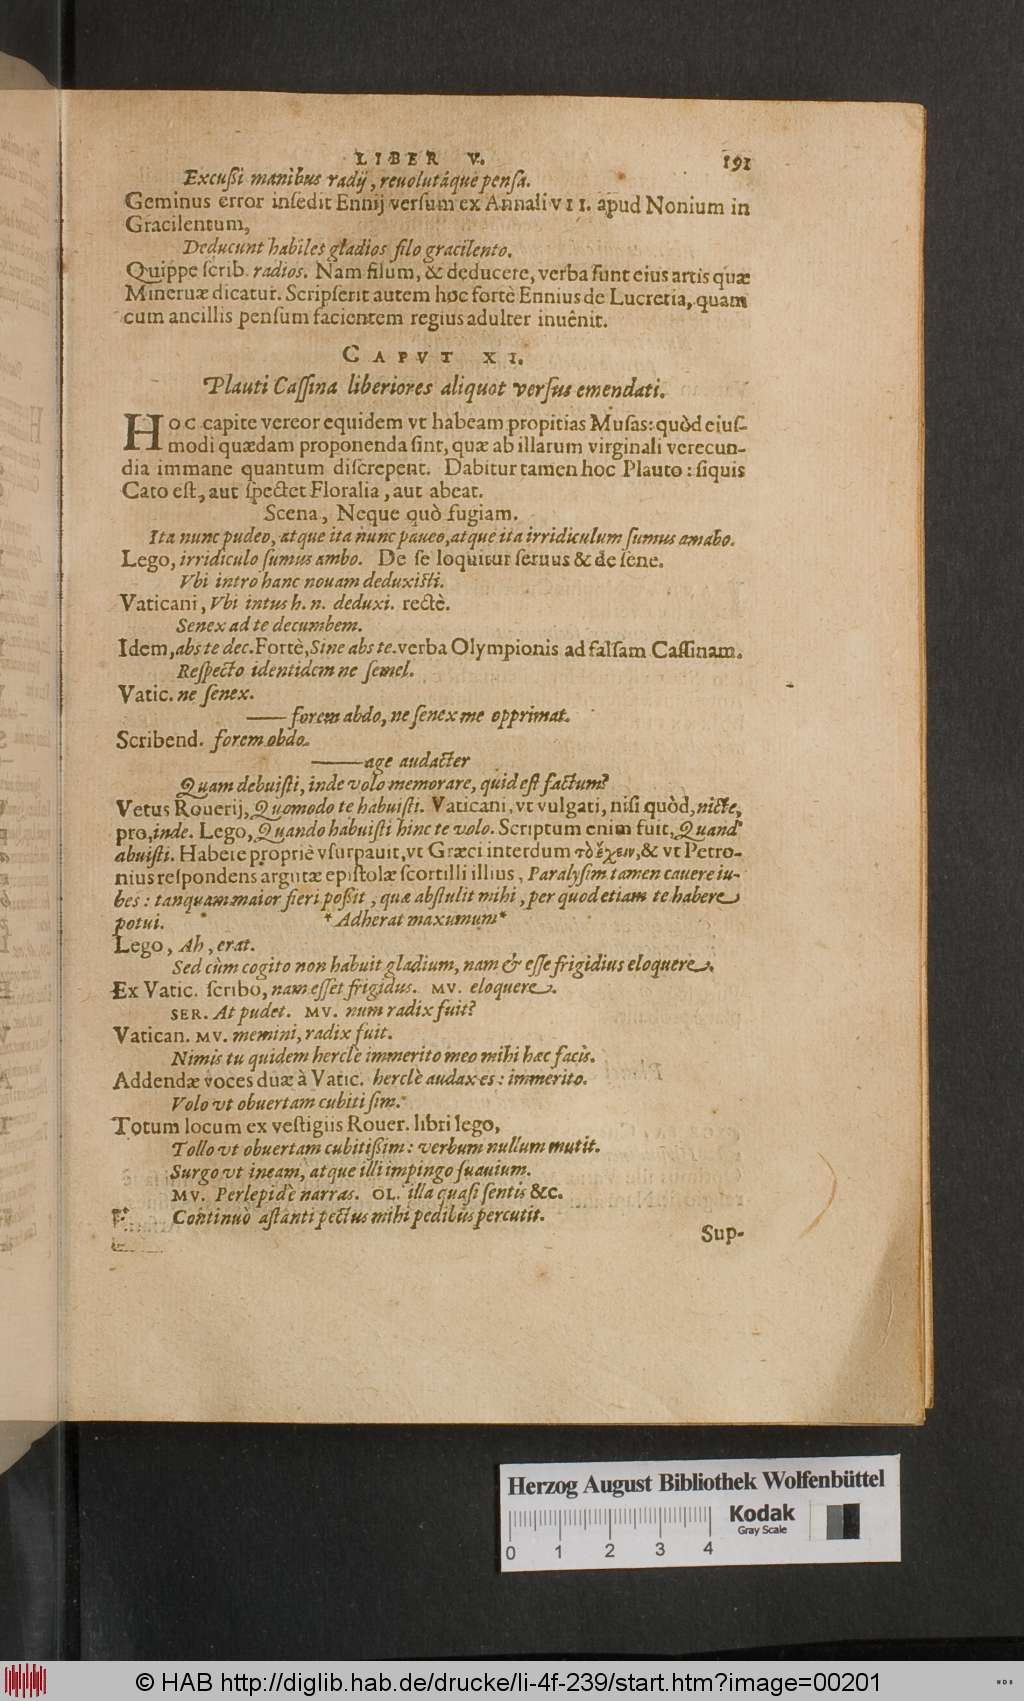 LIBER V. 191
Excußi manibus radij, reuolutáque pensa.
Geminus error insedit Ennij versum ex Annali VII. apud Nonium in
Gracilentum,
Deducunt habiles gladios filo gracilento.
Quippe scrib. radios. Nam filum, & deducere, verba sunt eius artis quæ
Mineruæ dicatur. Scripserit autem hoc fortè Ennius de Lucretia, quam
cum ancillis pensum facientem regius adulter inuênit.
CAPVT XI.
Plauti Cassina liberiores aliquot versus emendati.
HOC capite vereor equidem vt habeam propitias Musas: quòd eius-
modi quædam proponenda sint, quæ ab illarum virginali verecun-
dia immane quantum discrepent. Dabitur tamen hoc Plauto: siquis
Cato est, aut spectet Floralia, aut abeat.
Scena, Neque quò fugiam.
Ita nunc pudeo, atque ita nunc paueo, atque ita irridiculum sumus amabo.
Lego, irridiculo sumus ambo. De se loquitur seruus & de sene.
Vbi intro hanc nouam deduxisti.
Vaticani, Vbi intus h. n. deduxi. rectè.
Senex ad te decumbem.
Idem, abs te dec. Fortè, Sine abs te. verba Olympionis ad falsam Cassinam.
Respecto identidem ne semel.
Vatic. ne senex.
—— forem abdo, ne senex me opprimat.
Scribend. forem obdo.
—— age audacter
Quam debuisti, inde volo memorare, quid est factum?
Vetus Rouerij, Quomodo te habuisti. Vaticani, vt vulgati, nisi quòd, nicte,
pro, inde. Lego, Quando habuisti hinc te volo. Scriptum enim fuit, Quand'
abuisti. Habere propriè vsurpauit, vt Græci interdum τὸ ἔχειν, & vt Petro-
nius respondens argutæ epistolæ scortilli illius, Paralysim tamen cauere iu-
bes: tanquam maior fieri poßit, quæ abstulit mihi, per quod etiam te habere
potui. * Adherat maxumum*
Lego, Ah, erat.
Sed cùm cogito non habuit gladium, nam & esse frigidius eloquere.
Ex Vatic. scribo, nam esset frigidus. MV. eloquere.
SER. At pudet. MV. num radix fuit?
Vatican. MV. memini, radix fuit.
Nimis tu quidem herclè immerito meo mihi hæc facis.
Addendæ voces duæ à Vatic. herclè audax es: immerito.
Volo vt obuertam cubiti sim.
Totum locum ex vestigiis Rouer. libri lego,
Tollo vt obuertam cubitißim: verbum nullum mutit.
Surgo vt ineam, atque illi impingo suauium.
MV. Perlepidè narras. OL. illa quasi sentis &c.
Continuò astanti pectus mihi pedibus percutit.
Sup-
Herzog August Bibliothek Wolfenbüttel
Kodak
Gray Scale
0 1 2 3 4
© HAB http://diglib.hab.de/drucke/li-4f-239/start.htm?image=00201